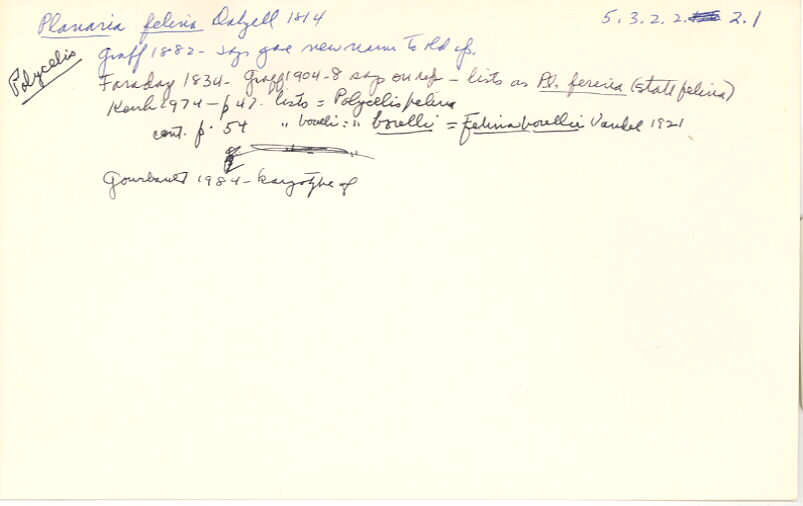 Planaria felina Dalyell 1814 5.3.2.2. 2.1
Polycelis
Graff 1882 - says gave new name to old sp.
Faraday 1834 - Graff 1904-8 says on ref - lists as Pl. fereria (stall felina)
Kenk 1974 - p 47. lists = Polycelis felina
cont. p. 54 " borelli = " borellii = felina borellii Vandel 1921
Gourbault 1984 - karyotype of